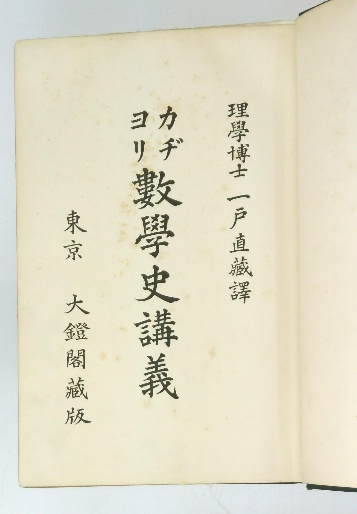 理學博士 一戸直藏譯
カヂヨリ 數學史講義
東京 大鐙閣藏版